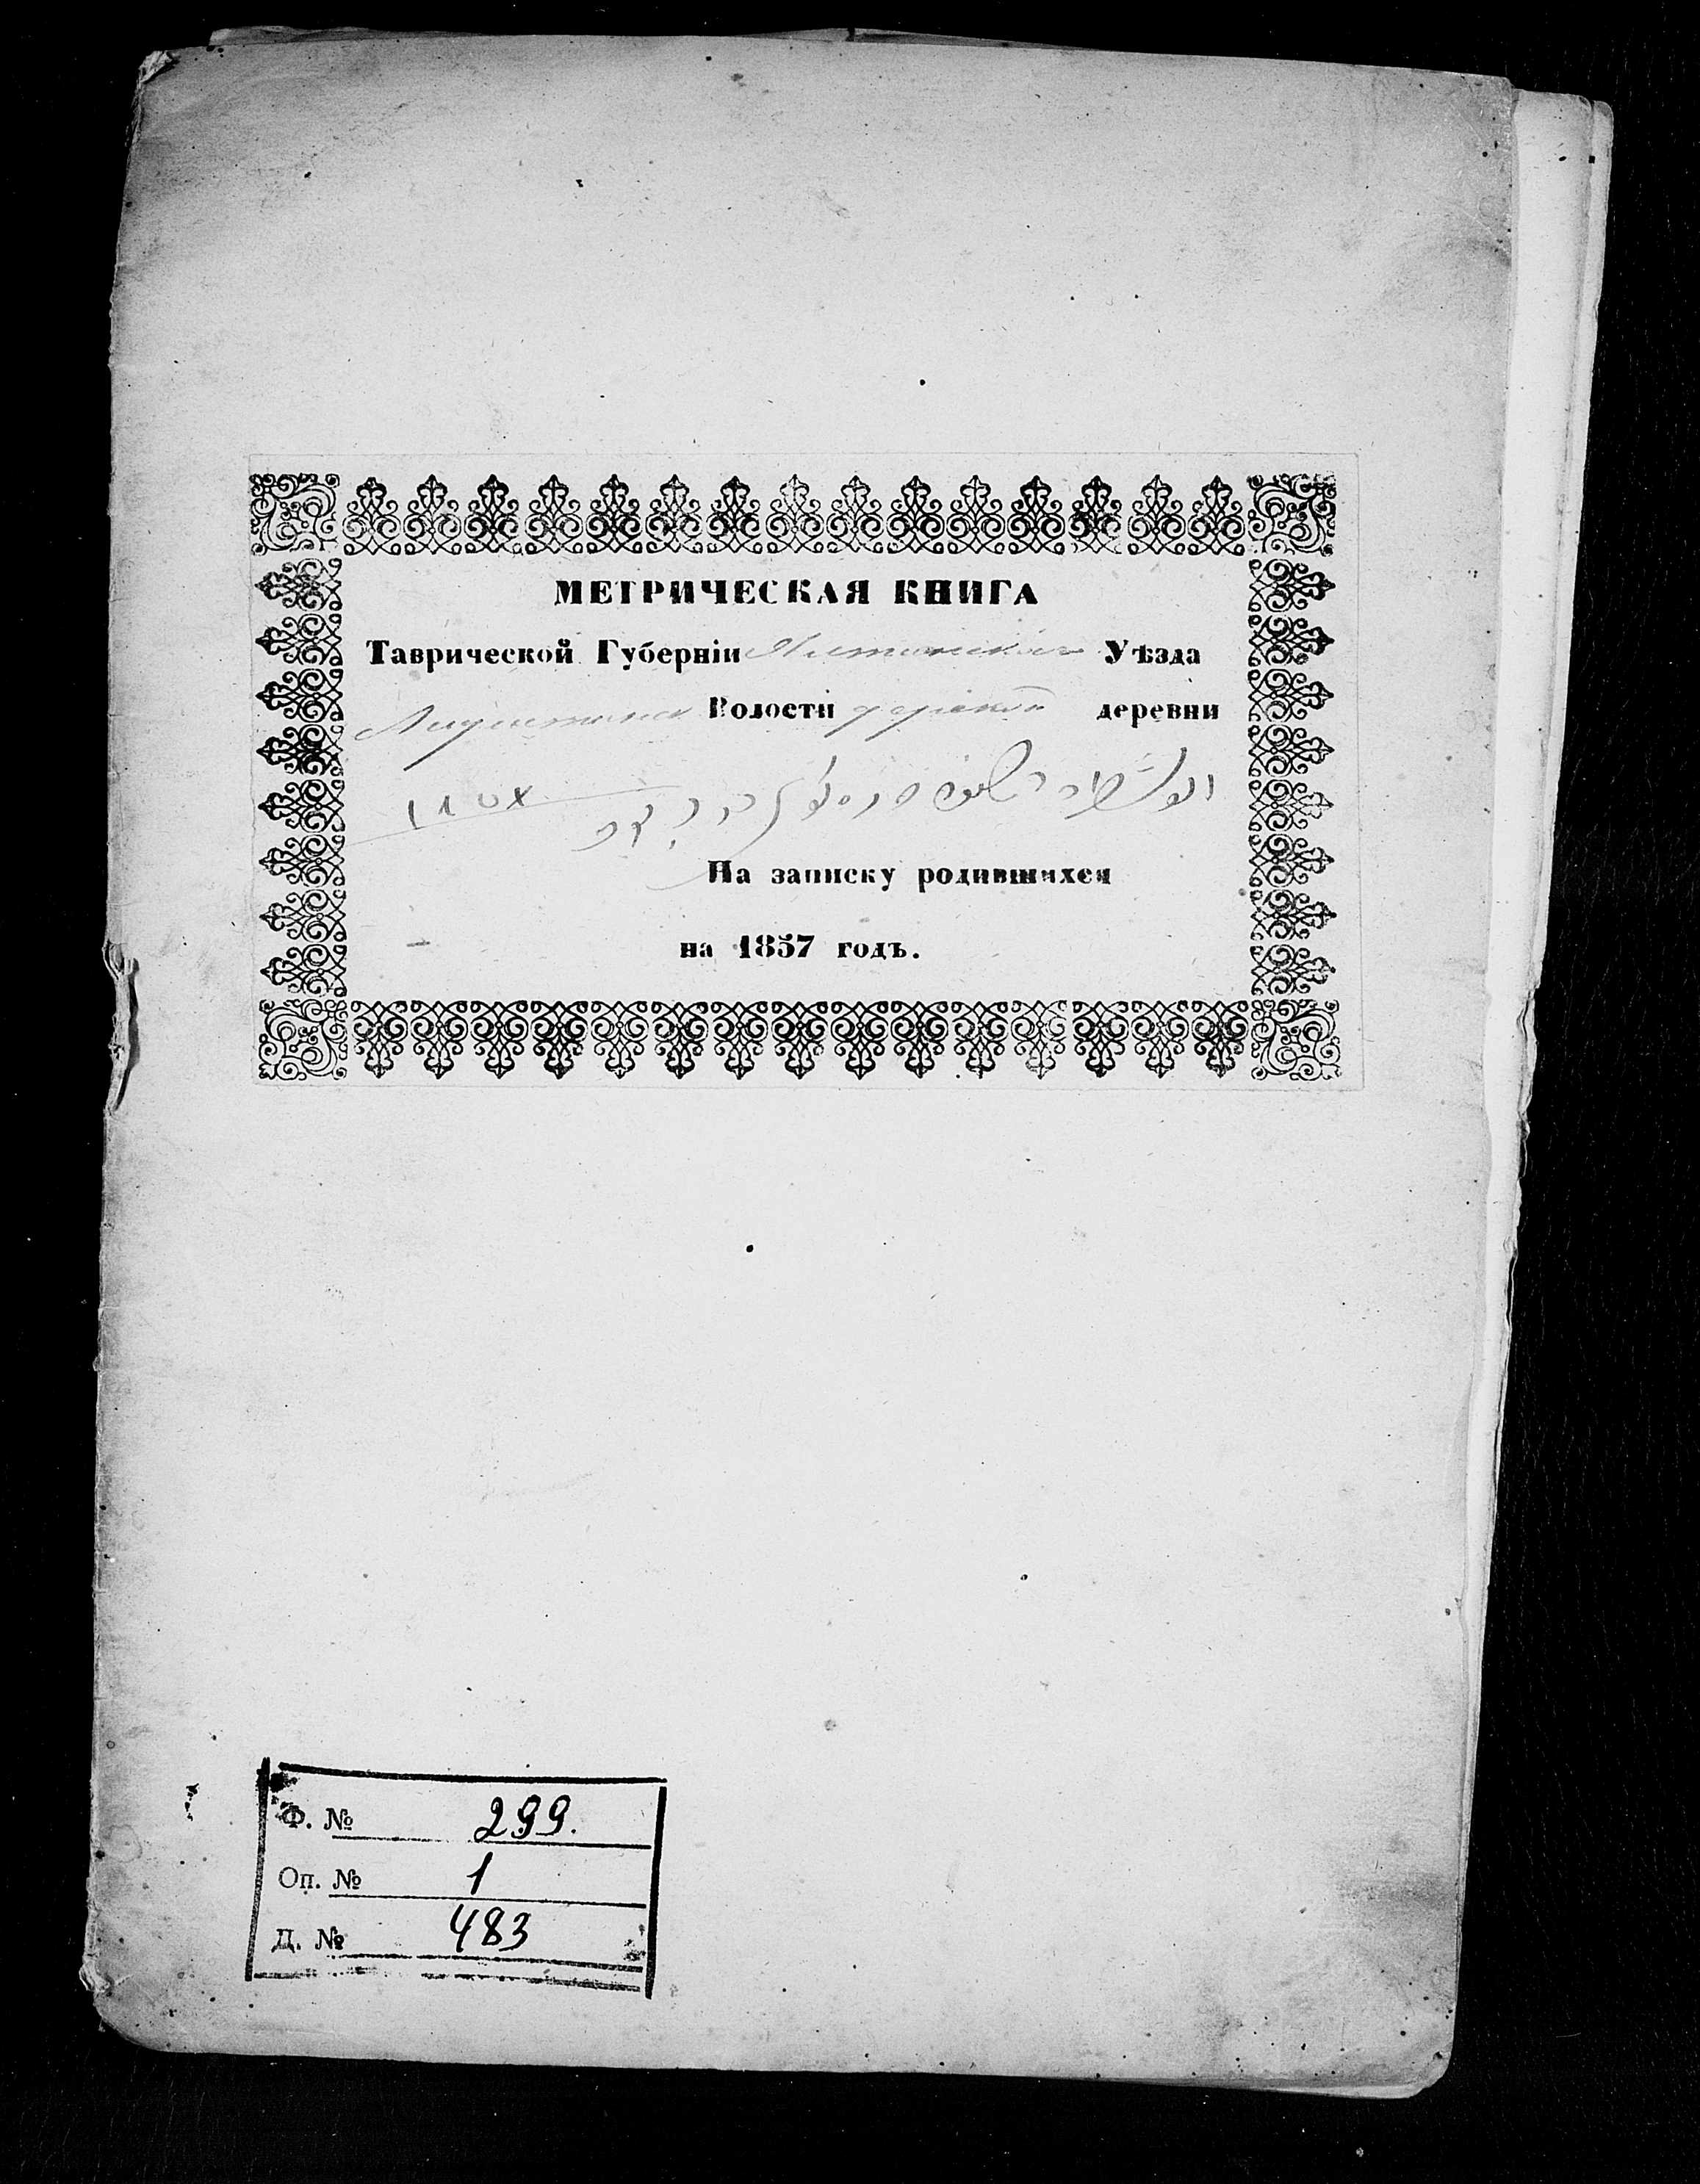 МЕТРИЧЕСКАЯ КНИГА
Таврической Губерніи Ялтинскаго Уѣзда
Волости дерекой деревни
١٨٥٧
На записку родившихся
на 1857 годъ.
Ф. № 299.
Оп. № 1
Д. № 483